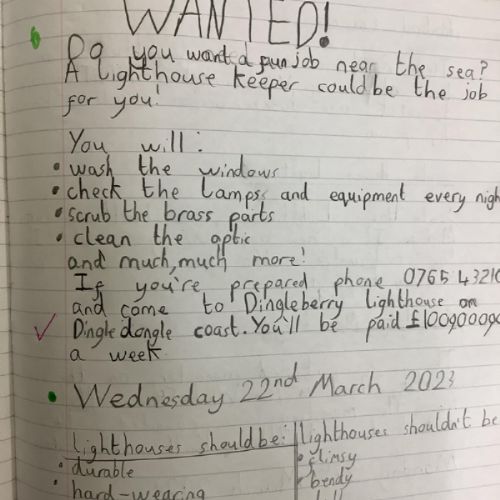 WANTED!
Do you want a fun job near the sea?
A lighthouse keeper could be the job
for you!
You will:
• wash the windows
• check the lamps and equipment every nigh
• scrub the brass parts
• clean the optic
and much, much more!
If you're prepared phone 0765 43210
and come to Dingleberry lighthouse on
Dingledongle coast. You'll be paid
a week.
• Wednesday 22nd March 2023
lighthouses should be: lighthouses shouldn't be
• durable • flimsy
• hard-wearing • bendy